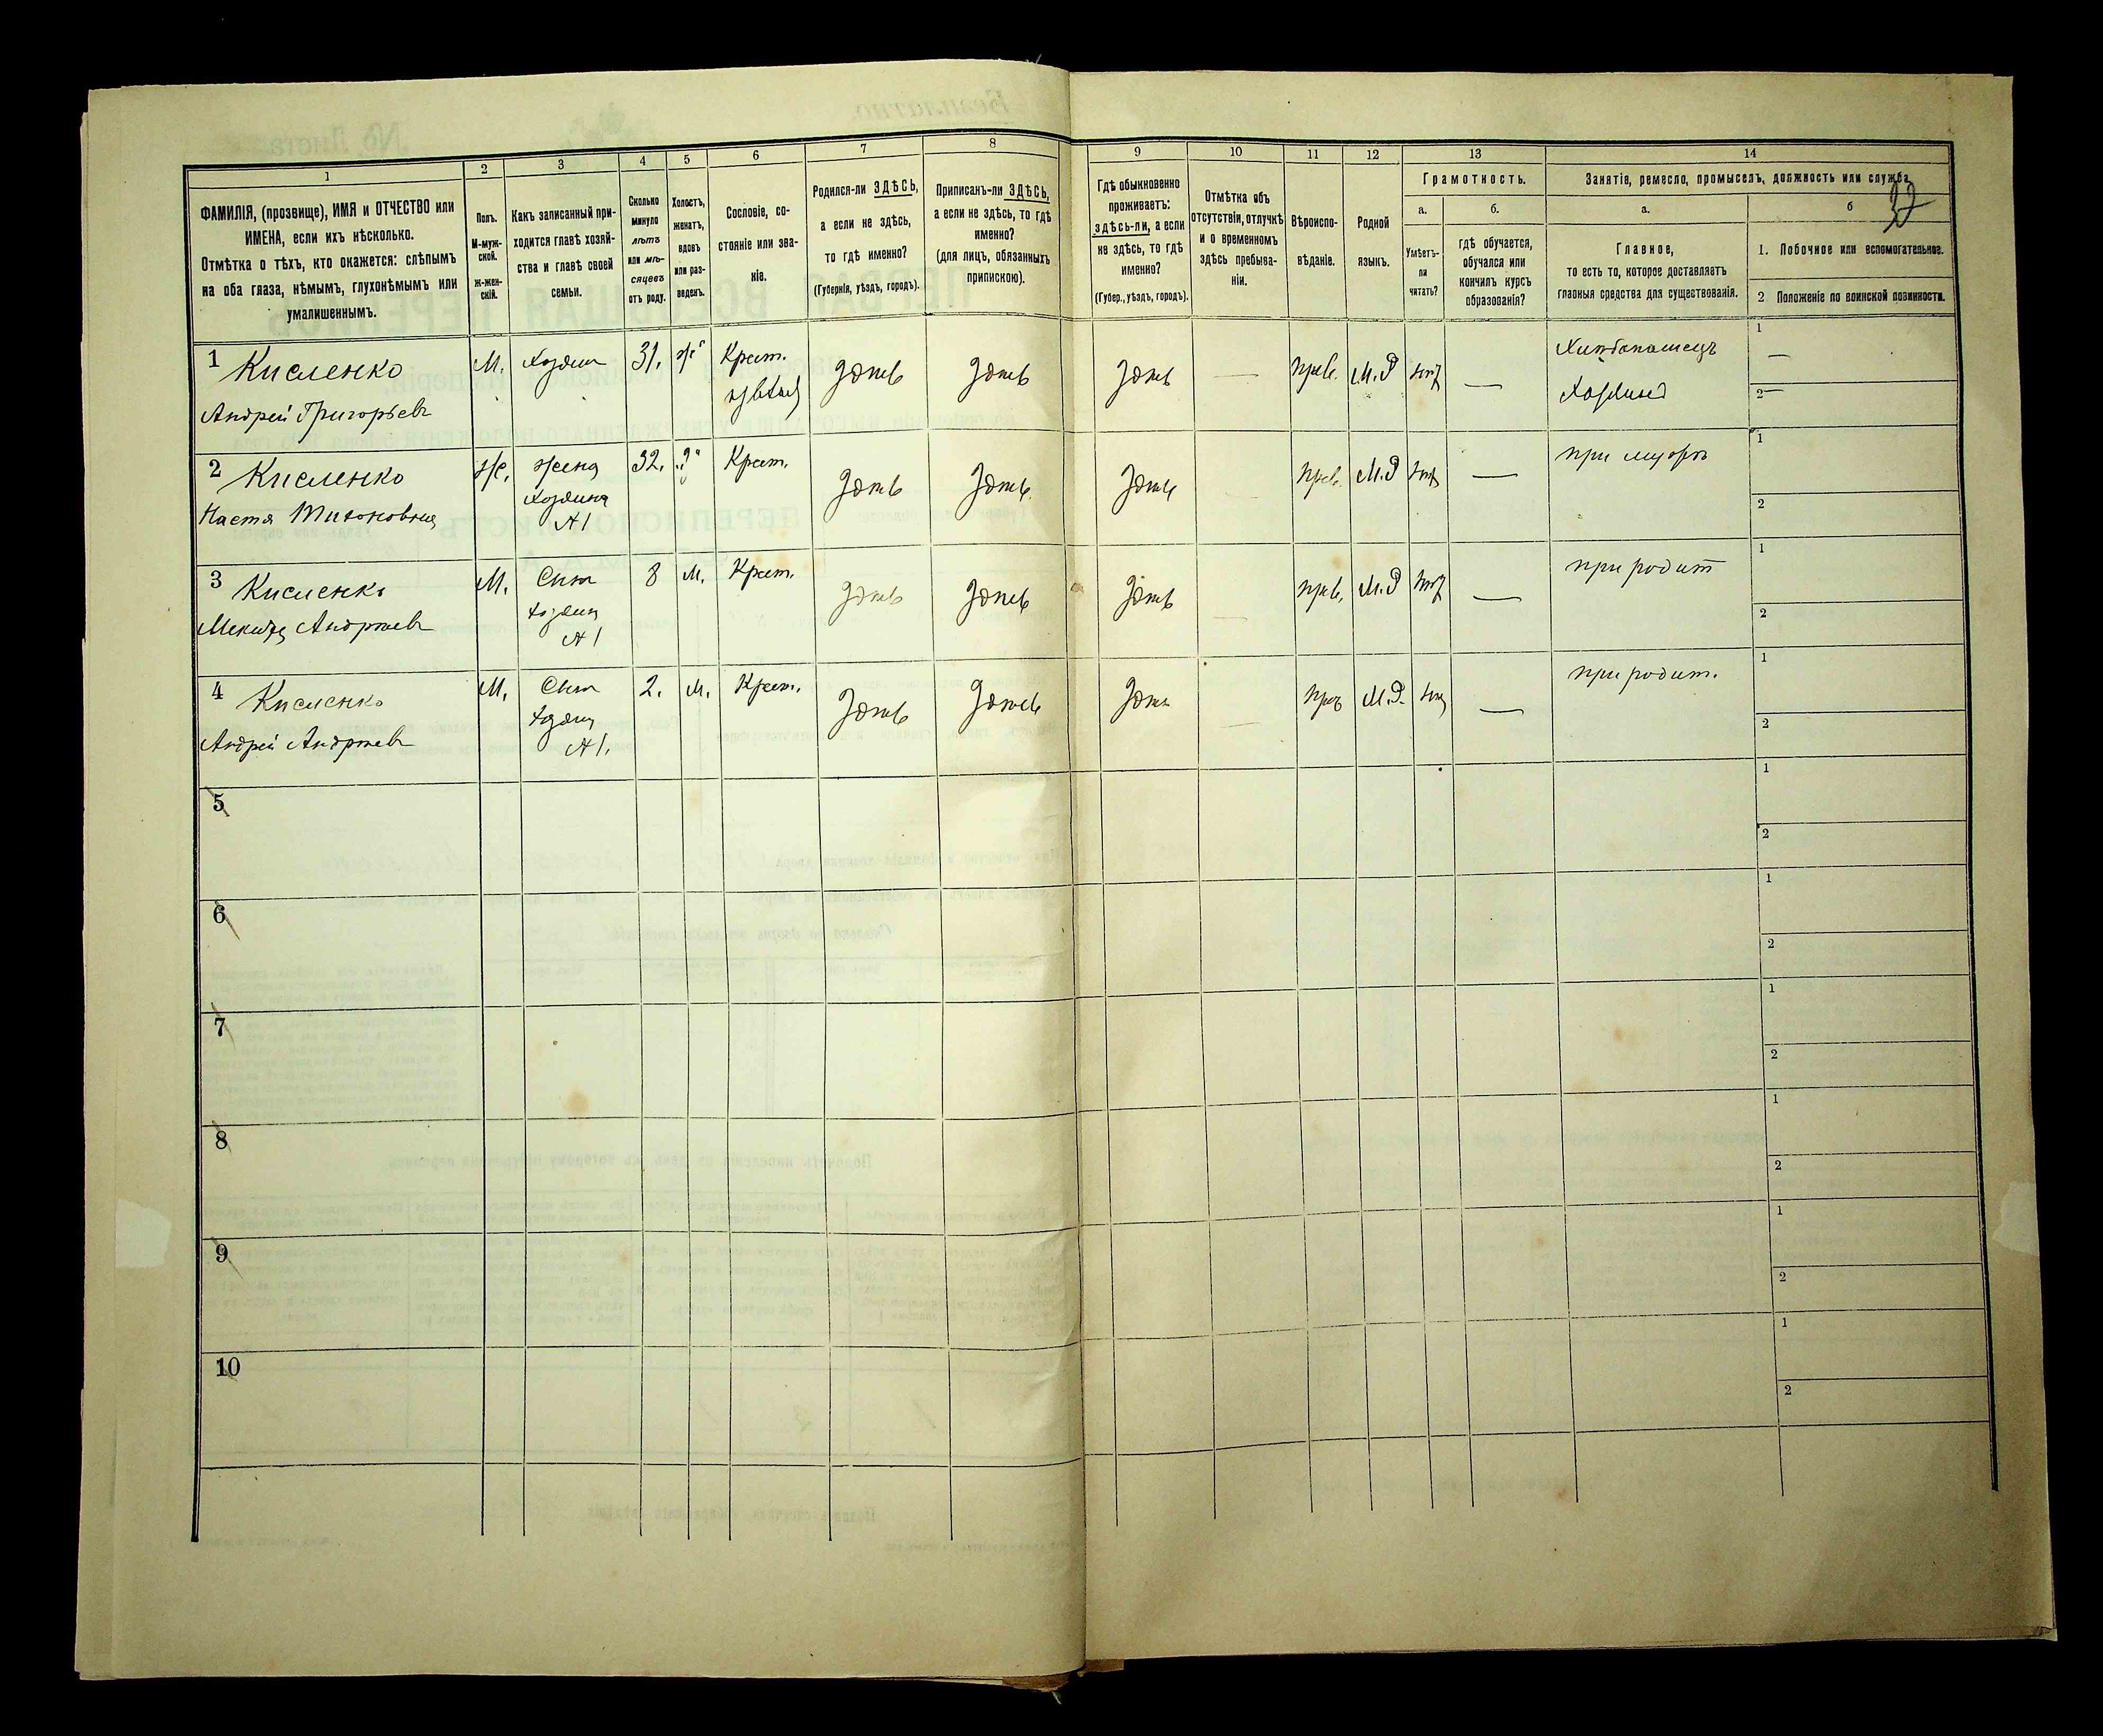 1
2
3
4
5
6
7
8
9
10
11
12
13
14
ФАМИЛІЯ, (прозвище), ИМЯ и ОТЧЕСТВО или
ИМЕНА, если ихъ нѣсколько.
Отмѣтка о тѣхъ, кто окажется: слѣпымъ
на оба глаза, нѣмымъ, глухонѣмымъ или
умалишеннымъ.
Полъ.
М-муж-
ской.
Ж-жен-
скій.
Какъ записанный при-
ходится главѣ хозяй-
ства и главѣ своей
семьи.
Сколько
минуло
лѣтъ
или мѣ-
сяцевъ
отъ роду.
Холостъ,
женатъ,
вдовъ
или раз-
веденъ.
Сословіе, со-
стояніе или зва-
ніе.
Родился-ли ЗДѢСЬ,
а если не здѣсь,
то гдѣ именно?
(Губернія, уѣздъ, городъ).
Приписанъ-ли ЗДѢСЬ,
а если не здѣсь, то гдѣ
именно?
(для лицъ, обязанныхъ
припискою).
Гдѣ обыкновенно
проживаетъ:
здѣсь-ли, а если
не здѣсь, то гдѣ
именно?
(Губер., уѣздъ, городъ).
Отмѣтка объ
отсутствіи, отлучкѣ
и о временномъ
здѣсь пребыва-
ніи.
Вѣроиспо-
вѣданіе.
Родной
языкъ.
Грамотность.
а.
Умѣетъ-
ли
читать?
б.
гдѣ обучается,
обучался или
кончилъ курсъ
образованія?
Занятіе, ремесло, промыселъ, должность или служба
а.
Главное,
то есть то, которое доставляетъ
главныя средства для существованія.
б
1. Побочное или вспомогательное.
2 Положеніе по воинской повинности.
1 Кисленко
Андрей Григорьевъ
М.
Хозяин
31.
Крест.
здѣсь
здѣсь
здѣсь
—
прав.
М.Р
—
Хлѣбопашецъ
Хозяинъ
1 —
2 —
2 Кисленко
Настя Тихоновна
Ж.
жена
Хозяина
№ 1
32.
Крест.
здѣсь
здѣсь
здѣсь
прав.
М.Р
—
при мужѣ
1
2
3 Кисленко
Андреевъ
М.
Сын
Хозяин
№ 1
8
М.
Крест.
здѣсь
здѣсь
здѣсь
—
прав.
М.Р
—
при родит
1
2
4 Кисленко
Андрей Андреевъ
М.
Сын
Хозяин
№ 1.
2.
М.
Крест.
здѣсь
здѣсь
здѣсь
—
М.Р.
—
при родит.
1
2
5
1
2
6
1
2
7
1
2
8
1
2
9
1
2
10
1
2